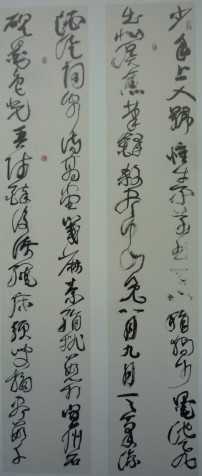 少年上人號懷素草書天下稱獨步墨池飛
出北溟魚筆鋒殺盡中山兔八月九月天氣涼
酒徒詞客滿高堂箋麻素絹排數箱宣州石
硯墨色光吾師醉後倚繩床須臾掃盡數千